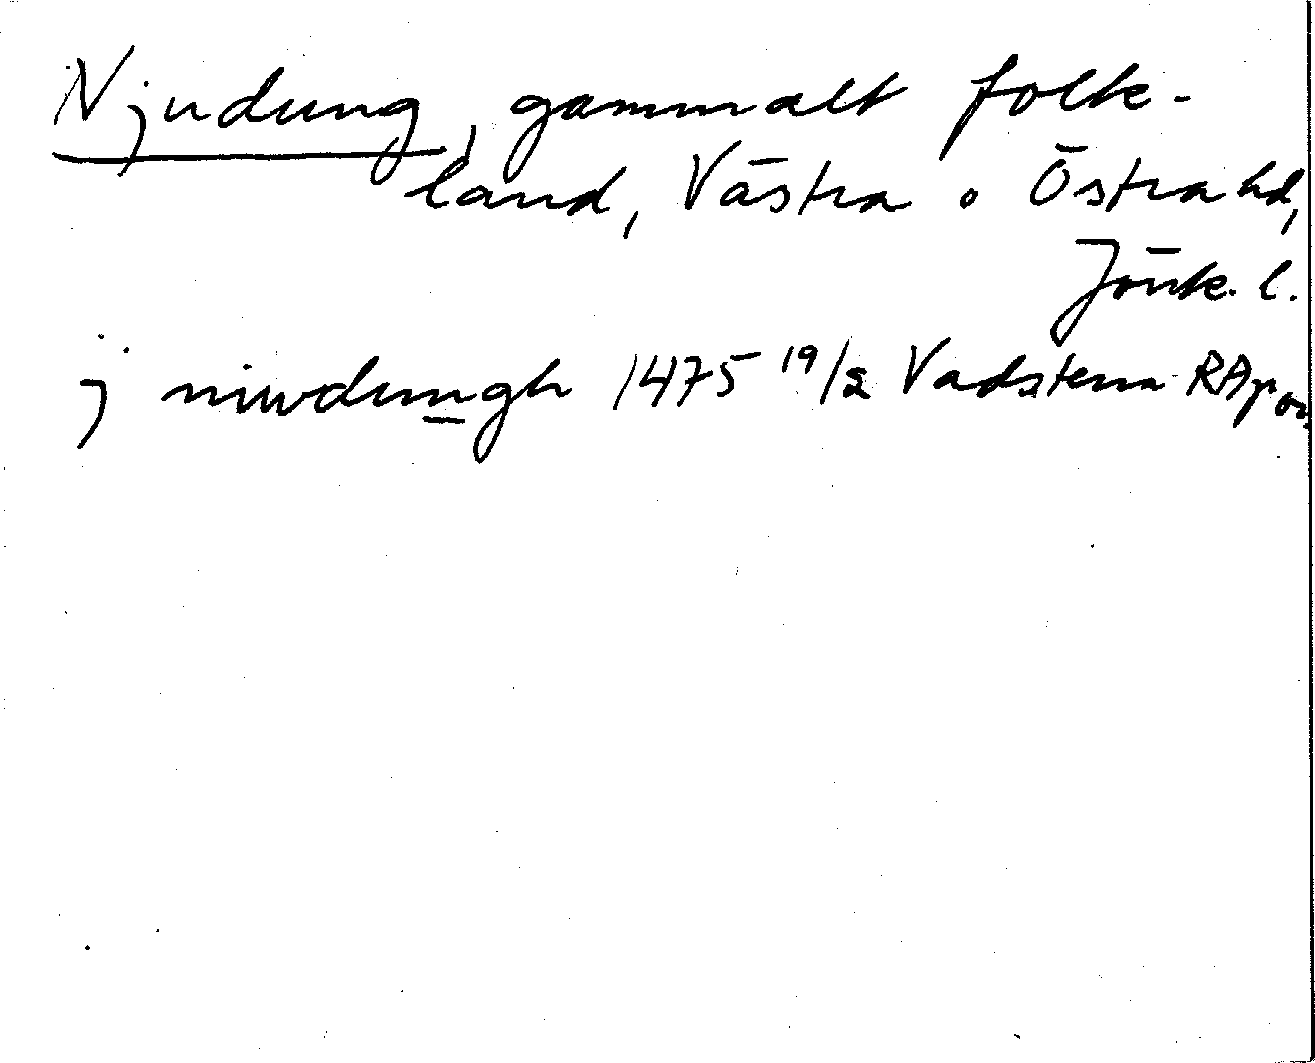 Njudung, gammalt folk-
land, Västra o Östra hd,
Jönk. l.
j niwdungh 1475 19/2 Vadstena RAp or.